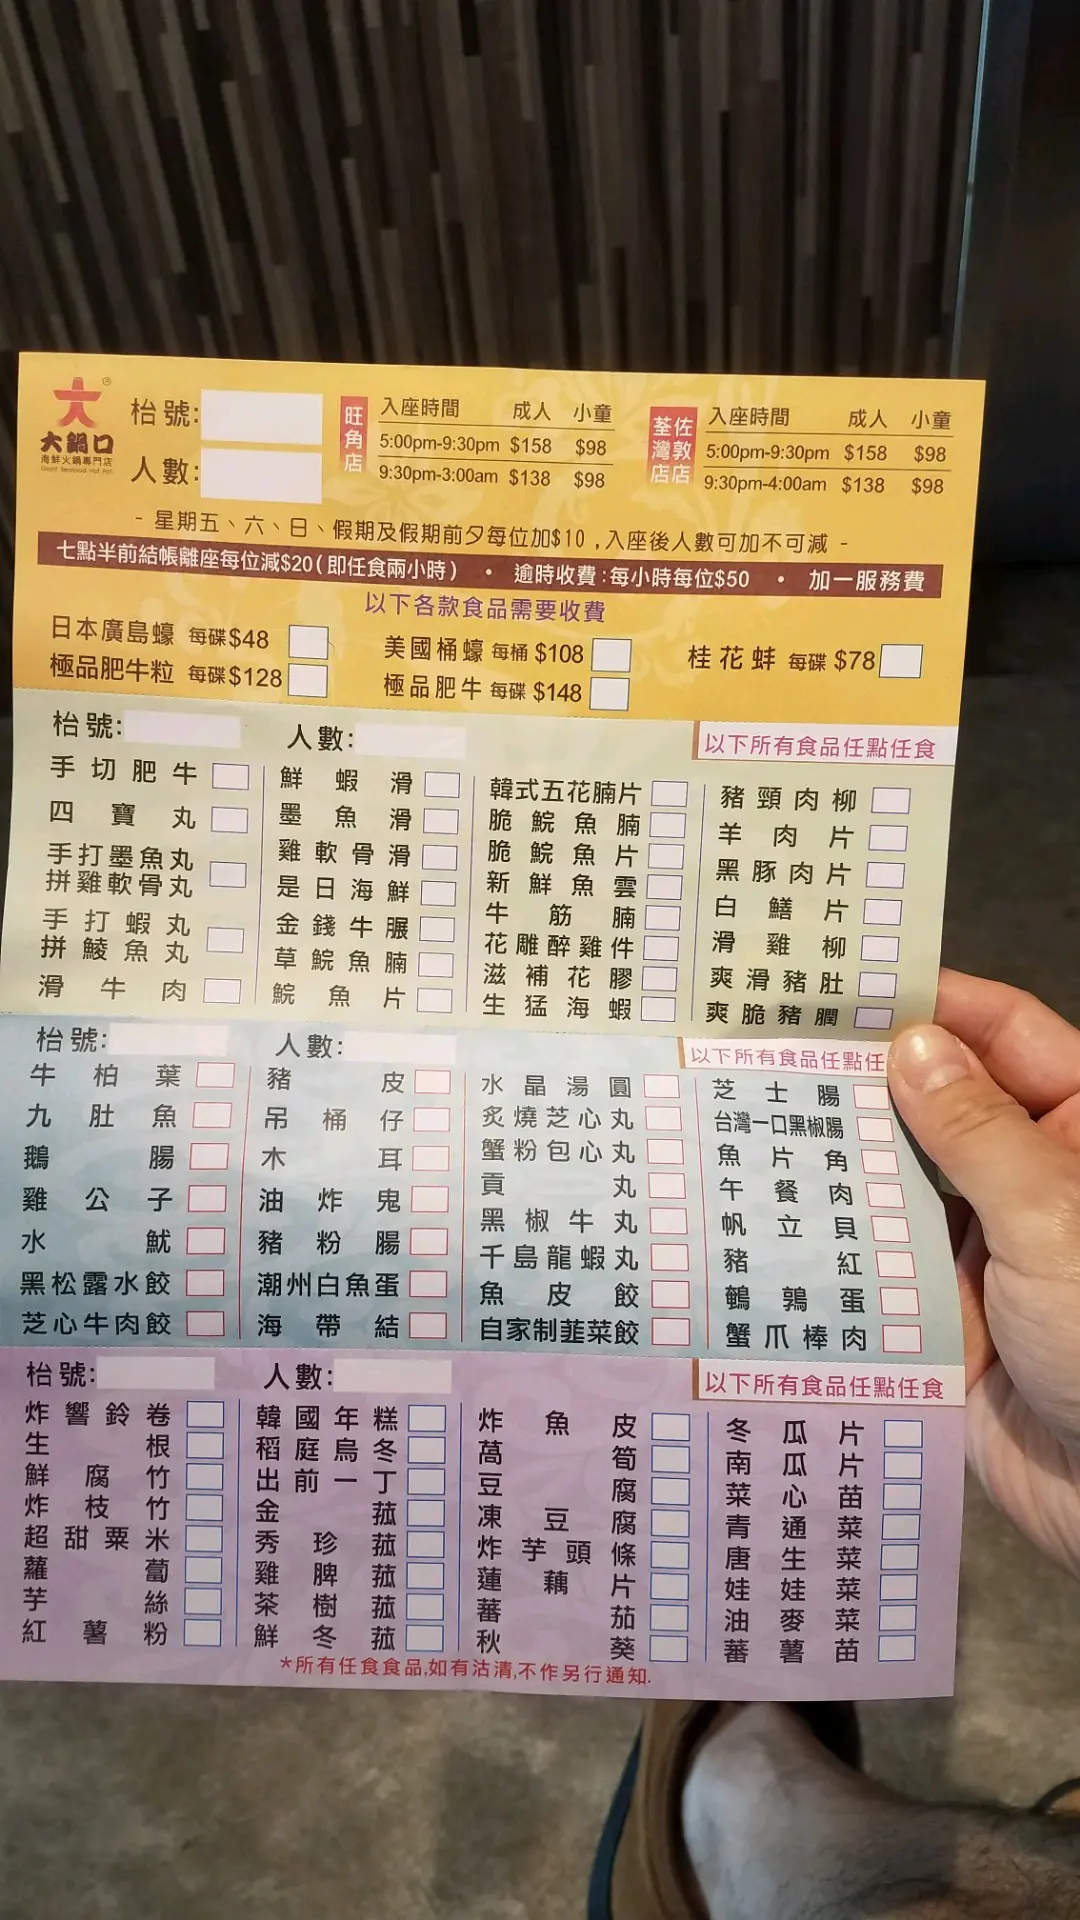 大®
大鍋口
海鮮火鍋專門店
Giant Seafood Hot Pot
枱號:
人數:
旺角店
入座時間 成人 小童
5:00pm-9:30pm $158 $98
9:30pm-3:00am $138 $98
荃灣店 佐敦店
入座時間 成人 小童
5:00pm-9:30pm $158 $98
9:30pm-4:00am $138 $98
- 星期五、六、日、假期及假期前夕每位加$10 ,入座後人數可加不可減 -
七點半前結帳離座每位減$20(即任食兩小時) • 逾時收費:每小時每位$50 • 加一服務費
以下各款食品需要收費
日本廣島蠔 每碟$48
極品肥牛粒 每碟$128
美國桶蠔 每桶 $108
極品肥牛 每碟 $148
桂花蚌 每碟 $78
枱號: 人數:
以下所有食品任點任食
手切肥牛
四寶丸
手打墨魚丸
拼雞軟骨丸
手打蝦丸
拼鯪魚丸
滑牛肉
鮮蝦滑
墨魚滑
雞軟骨滑
是日海鮮
金錢牛𦟌
草鯇魚腩
鯇魚片
韓式五花腩片
脆鯇魚腩
脆鯇魚片
新鮮魚雲
牛筋腩
花雕醉雞件
滋補花膠
生猛海蝦
豬頸肉柳
羊肉片
黑豚肉片
白鱔片
滑雞柳
爽滑豬肚
爽脆豬膶
枱號: 人數:
以下所有食品任點任
牛柏葉
九肚魚
鵝腸
雞公子
水魷
黑松露水餃
芝心牛肉餃
豬皮
吊桶仔
木耳
油炸鬼
豬粉腸
潮州白魚蛋
海帶結
水晶湯圓
炙燒芝心丸
蟹粉包心丸
貢丸
黑椒牛丸
千島龍蝦丸
魚皮餃
自家制韮菜餃
芝士腸
台灣一口黑椒腸
魚片角
午餐肉
帆立貝
豬紅
鵪鶉蛋
蟹爪棒肉
枱號: 人數:
以下所有食品任點任食
炸響鈴卷
生根
鮮腐竹
炸枝竹
超甜粟米
蘿蔔
芋絲
紅薯粉
韓國年糕
稻庭烏冬
出前一丁
金菰
秀珍菰
雞脾菰
茶樹菰
鮮冬菰
炸魚皮
萵筍
豆腐
凍豆腐
炸芋頭條
蓮藕片
蕃茄
秋葵
冬瓜片
南瓜片
菜心苗
青通菜
唐生菜
娃娃菜
油麥菜
蕃薯苗
*所有任食食品,如有沽清,不作另行通知.